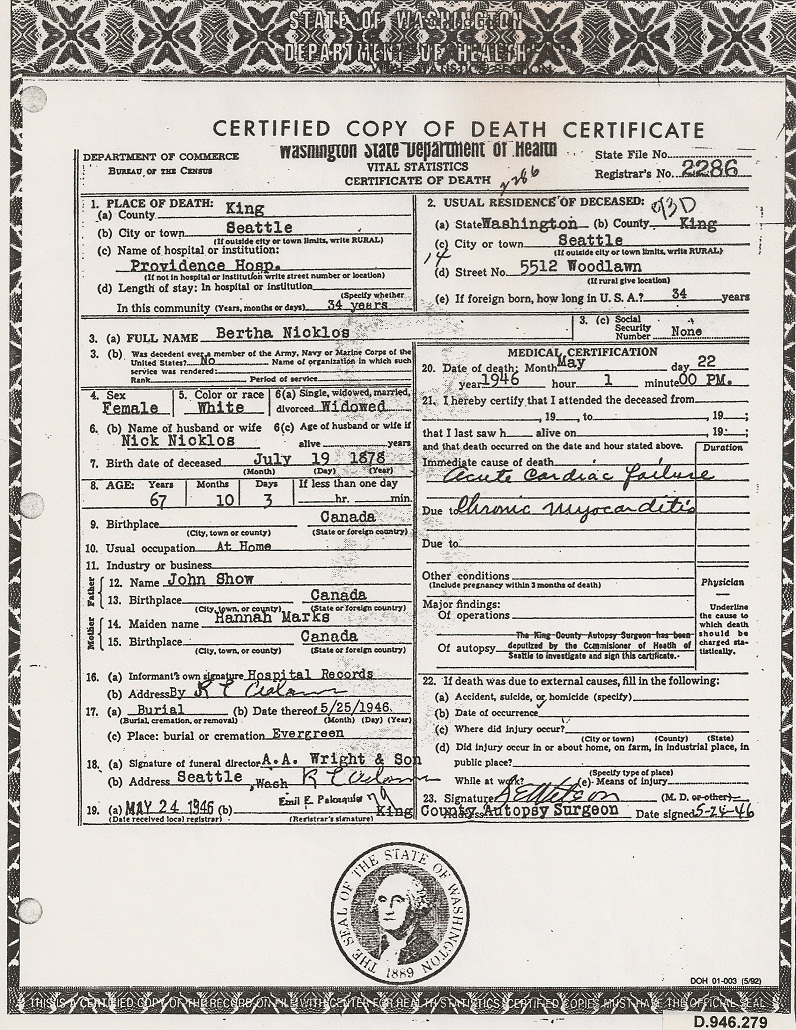 STATE OF WASHINGTON
DEPARTMENT OF HEALTH
VITAL STATISTICS SECTION
CERTIFIED COPY OF DEATH CERTIFICATE
DEPARTMENT OF COMMERCE
BUREAU OF THE CENSUS
Washington State Department of Health
VITAL STATISTICS
CERTIFICATE OF DEATH
2286
State File No.
Registrar's No. 2286
1. PLACE OF DEATH:
(a) County King
(b) City or town Seattle
(If outside city or town limits, write RURAL)
(c) Name of hospital or institution:
Providence Hosp.
(If not in hospital or institution write street number or location)
(d) Length of stay: In hospital or institution
(Specify whether
In this community (Years, months or days) 34 years
2. USUAL RESIDENCE OF DECEASED:
(a) State Washington (b) County King
(c) City or town Seattle
14
(If outside city or town limits, write RURAL)
(d) Street No. 5512 Woodlawn
(If rural give location)
(e) If foreign born, how long in U. S. A.? 34 years
3. (a) FULL NAME Bertha Nicklos
3. (c) Social Security Number None
3. (b) Was decedent ever a member of the Army, Navy or Marine Corps of the
United States? No Name of organization in which such
service was rendered:
Rank Period of service
4. Sex Female
5. Color or race White
6(a) Single, widowed, married,
divorced Widowed
6. (b) Name of husband or wife
Nick Nicklos
6(c) Age of husband or wife if
alive years
7. Birth date of deceased July 19 1878
(Month) (Day) (Year)
8. AGE: Years Months Days If less than one day
67 10 3 hr. min.
9. Birthplace Canada
(City, town or county) (State or foreign country)
10. Usual occupation At Home
11. Industry or business
Father
12. Name John Show
13. Birthplace Canada
(City, town, or county) (State or foreign country)
Mother
14. Maiden name Hannah Marks
15. Birthplace Canada
(City, town, or county) (State or foreign country)
16. (a) Informant's own signature Hospital Records
(b) Address By
17. (a) Burial (b) Date thereof 5/25/1946
(Burial, cremation, or removal) (Month) (Day) (Year)
(c) Place: burial or cremation Evergreen
18. (a) Signature of funeral director A.A. Wright & Son
(b) Address Seattle, Wash
19. (a) MAY 24 1946 (b) Emil E. Palmquist
(Date received local registrar) (Registrar's signature)
MEDICAL CERTIFICATION
20. Date of death: Month May day 22
year 1946 hour 1 minute 00 PM.
21. I hereby certify that I attended the deceased from
, 19 , to , 19 ;
that I last saw h alive on , 19 ;
and that death occurred on the date and hour stated above.
Duration
Immediate cause of death
Acute Cardiac failure
Due to Chronic myocarditis
Due to
Other conditions
(Include pregnancy within 3 months of death)
Major findings:
Of operations
Of autopsy
The King County Autopsy Surgeon has been
deputized by the Commissioner of Health of
Seattle to investigate and sign this certificate.
Physician
Underline
the cause to
which death
should be
charged sta-
tistically.
22. If death was due to external causes, fill in the following:
(a) Accident, suicide, or homicide (specify)
(b) Date of occurrence
(c) Where did injury occur?
(City or town) (County) (State)
(d) Did injury occur in or about home, on farm, in industrial place, in
public place?
(Specify type of place)
While at work? (e) Means of injury
23. Signature (M. D. or other)
King County Autopsy Surgeon Date signed 5-24-46
THE SEAL OF THE STATE OF WASHINGTON
1889
DOH 01-003 (5/92)
THIS IS A CERTIFIED COPY OF THE RECORD ON FILE WITH CENTER FOR HEALTH STATISTICS. CERTIFIED COPIES MUST HAVE THE OFFICIAL SEAL
D.946.279